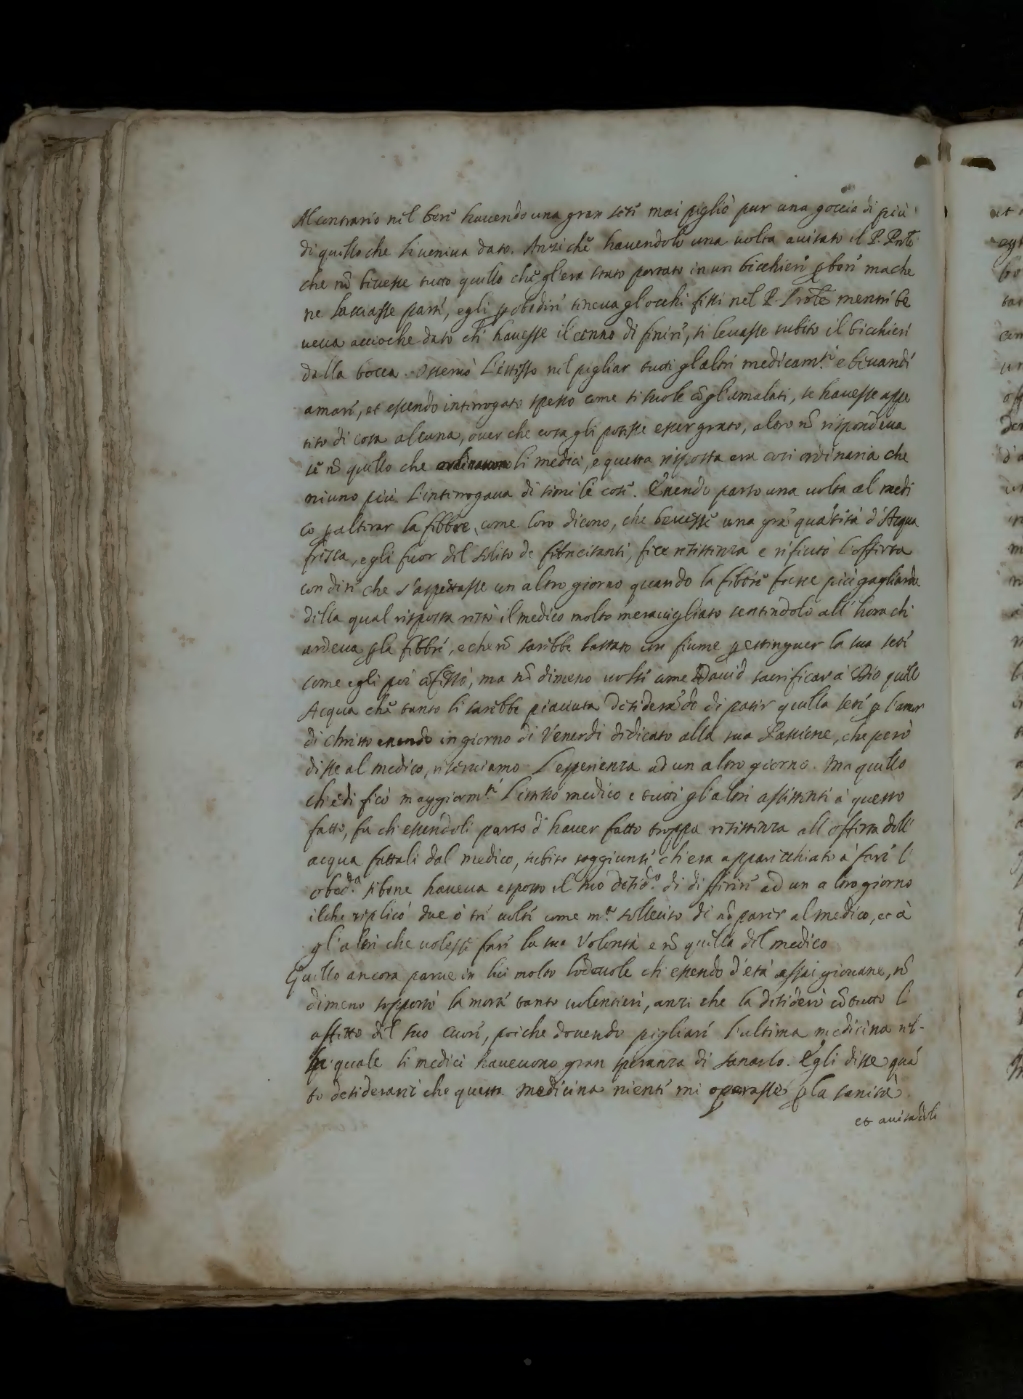 Al contrario nel bere havendo una gran sete mai pigliò pur una goccia di più
di quello che li veniva dato. Anzi che havendolo una volta avisato il P. Pref.te
che nō bevesse tutto quello che gl'era stato portato in un bicchiere p bere ma che
ne lasciasse parte, egli p obedire teneva gl'occhi fissi nel P. mentre be
veva accioche dato che havesse il cenno di finire, si levasse subito il bicchiere
dalla bocca. Osservò l'istesso nel pigliar tutti gl'altri medicam.ti e bevande
amare, et essendo interrogato spesso come si suole cō gl'amalati, se havesse appe
tito di cosa alcuna, over che cosa gli potesse esser grato, altro nō rispondeva
se nō quello che ordinavano li medici, e questa risposta era così ordinaria che
niuno più l'interrogava di simile cose. Essendo parso una volta al medi
co p alterar la febbre, come loro dicono, che bevesse una grā quātità d'Acqua
fresca, egli fuor del solito de febricitanti, fece resistenza e rifiutò l'offerta
con dire che s'aspettasse un altro giorno quando la febbre fosse più gagliarda
della qual risposta restò il medico molto meravigliato sentendolo all'hora che
ardeva p la febbre, e che nō sarebbe bastato un fiume p estinguer la sua sete
come egli poi cōfessò, ma nō dimeno volse come David sacrificar a Dio quell
Acqua che tanto li sarebbe piaciuta desiderādo di patir quella sete p l'amor
di Christo essendo in giorno di Venerdi dedicato alla sua Passione, che però
disse al medico, riserviamo l'esperienza ad un altro giorno. Ma quello
ch'edificò maggiorm.te l'istesso medico e tutti gl'altri assistenti à questo
fatto, fu ch'essendoli parso d'haver fatto troppa resistenza all'offerta dell'
acqua fattali dal medico, subito soggiunse ch'era apparecchiato à fare l'
obed.za sibene haveva esposto il suo desid.o di differire ad un altro giorno
il che replicò due ò tre volte come m.to sollecito di nō parer al medico, et à
gl'altri che volesse fare la sua Volontà e nō quella del medico
Quello ancora parve in lui molto lodevole ch'essendo d'età assai giovane, nō
dimeno sopportò la morte tanto volentieri, anzi che la desiderò cō tutto l'
affetto del suo cuore, poiche dovendo pigliare l'ultima medicina nel-
la quale li medici havevono gran speranza di sanarlo. Egli disse quā
to desiderarei che questa medicina niente mi operasse p la sanità
et avisādoli